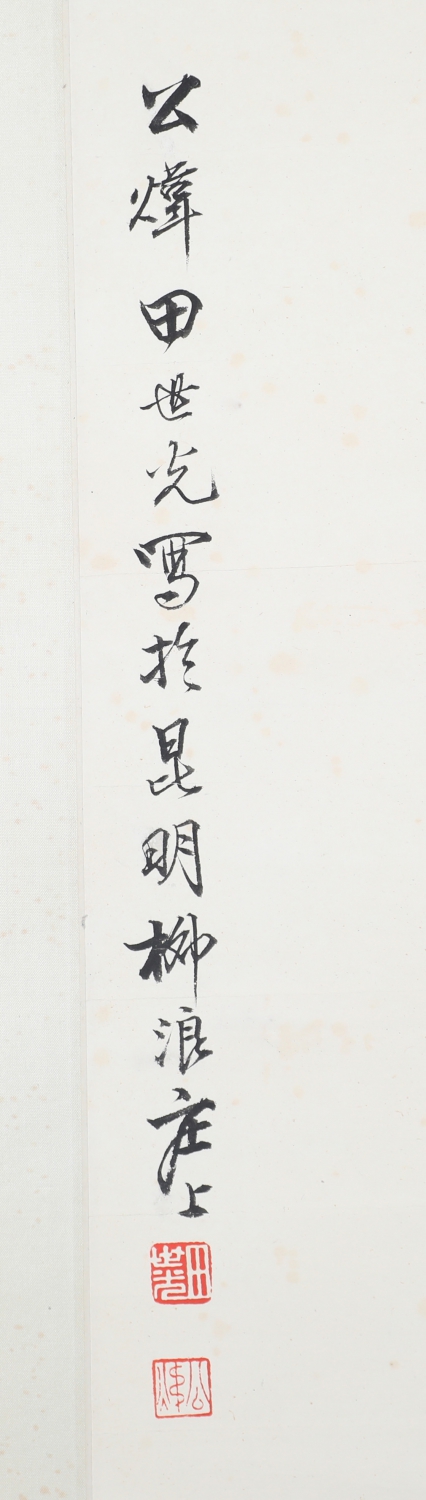 公煒田世光寫於昆明柳浪庄上
田世光
公煒